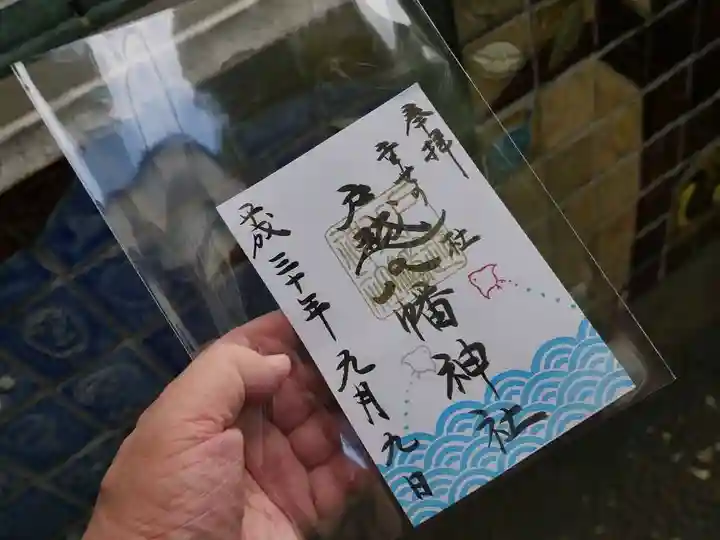 奉拝
戸越八幡神社
平成三十年九月九日